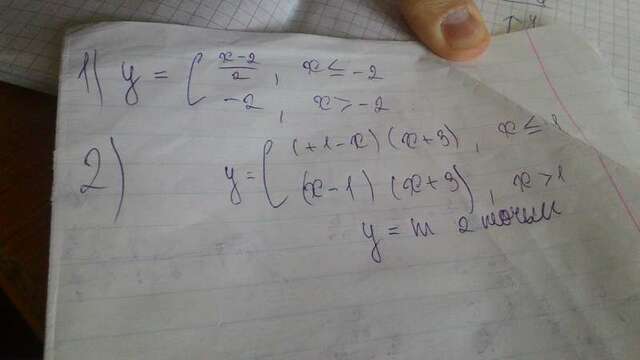 1) y = { x-2/2 , x ≤ -2
-2 , x > -2
2) y = { (+1-x)(x+3) , x ≤
(x-1)(x+3) , x > 1
y = m 2 точки